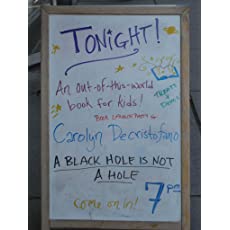 TONIGHT!
An out-of-this-world
book for kids!
Book Launch Party
TREATS
Demos
Carolyn Decristofano
A BLACK HOLE IS NOT
A HOLE
7pm
come on in!